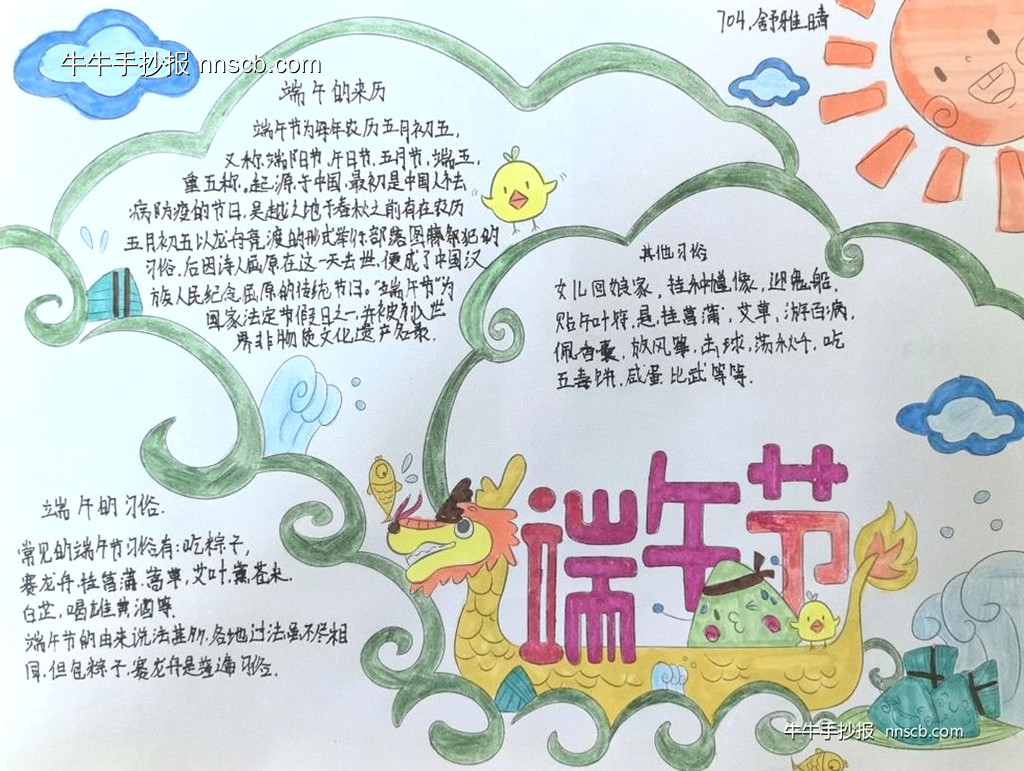 704.舒雅晴
牛牛手抄报 nnscb.com
端午的来历
端午节为每年农历五月初五,
又称端阳节,午日节,五月节,端五,
重五称。起源于中国,最初是中国人祛
病防疫的节日,吴越之地于春秋之前有在农历
五月初五以龙舟竞渡的形式举行部落图腾祭祀的
习俗,后因诗人屈原在这一天去世,便成了中国汉
族人民纪念屈原的传统节日,“端午节”为
国家法定节假日之一,并被列入世
界非物质文化遗产名录.
其他习俗
女儿回娘家,挂钟馗像,迎鬼船,
贴午叶符,悬挂菖蒲,艾草,游百病,
佩香囊,放风筝,击球,荡秋千,吃
五毒饼,咸蛋,比武等等.
端午的习俗.
常见的端午节习俗有:吃粽子,
赛龙舟,挂菖蒲,蒿草,艾叶,薰苍术,
白芷,喝雄黄酒等.
端午节的由来说法甚多,各地过法虽不尽相
同,但包粽子,赛龙舟是普遍习俗.
端午节
牛牛手抄报 nnscb.com